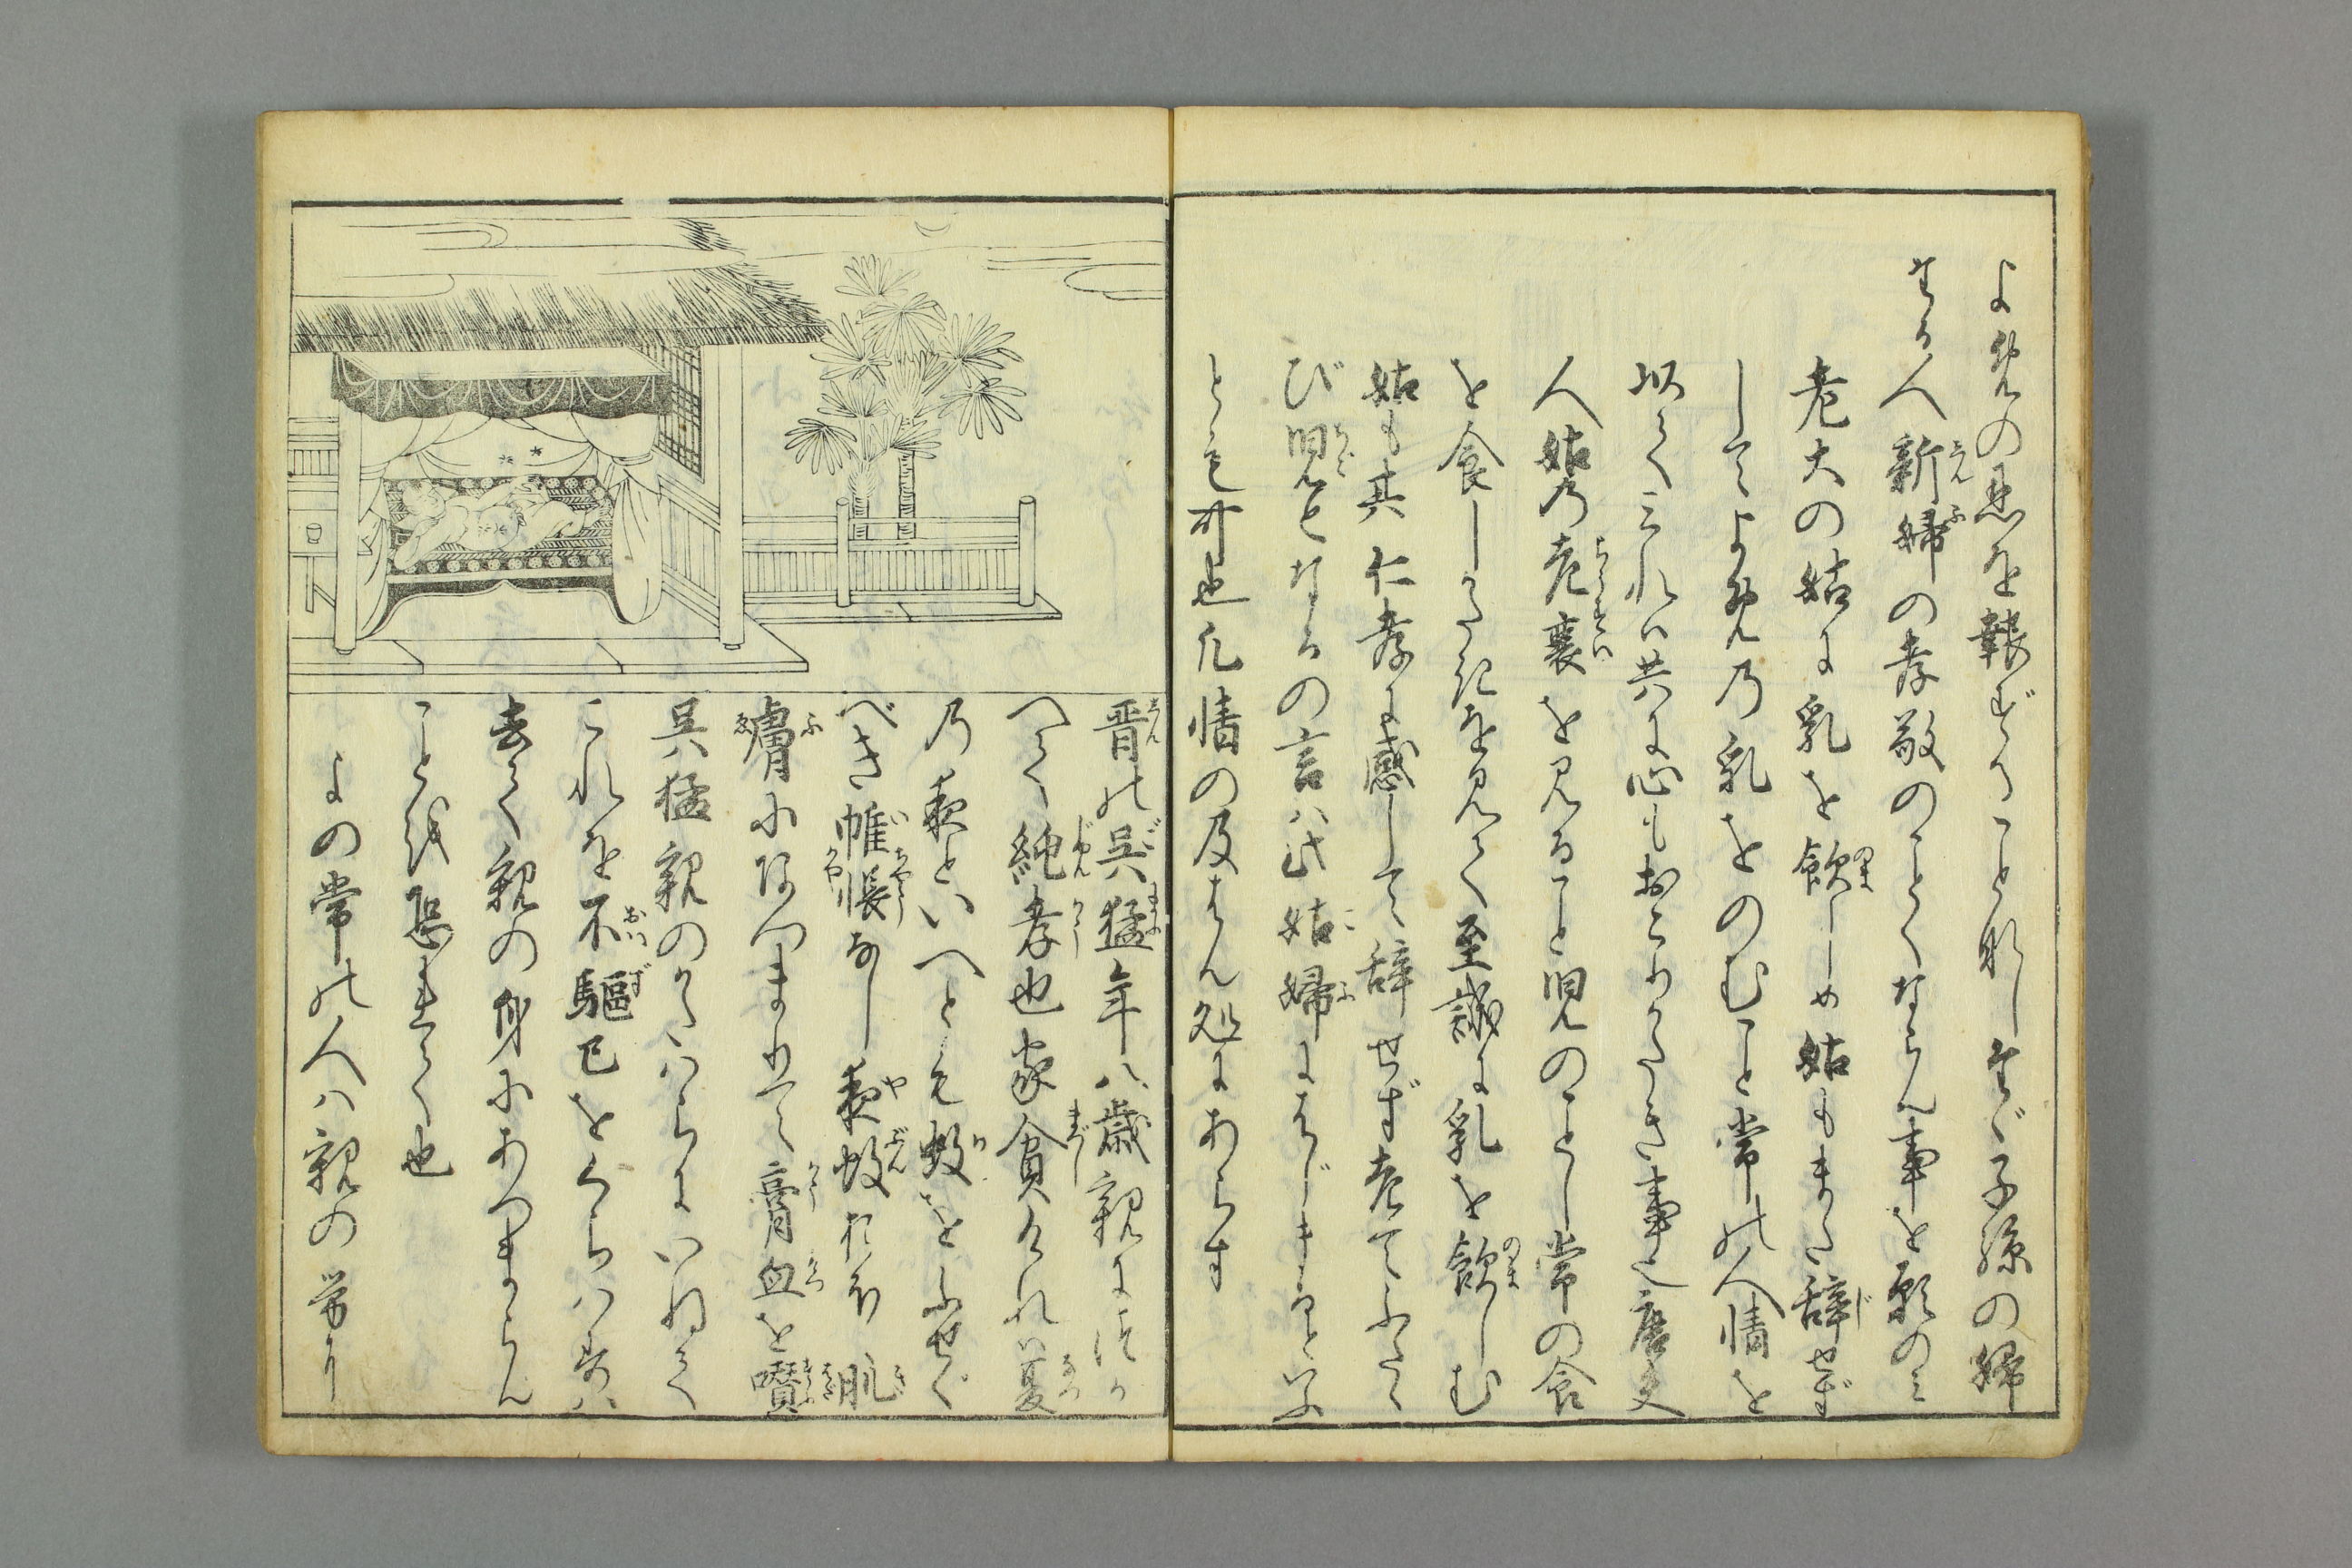 よめの恩を報ずることなしたゞ子孫の婦
たる人新婦の孝敬のごとくならん事を願のミ
老大の姑に乳を飲しめ姑もまた辞せず
してよめ乃乳をのむこと常の人情を
以てミれハ共に心もおこりかたき事也唐夫
人姑乃老衰を見ること児のごとし常の食
を食しかたきを見て至誠に乳を飲しむ
姑も其仁孝に感して辞せず老てふたゝ
び児となるの言ハ此姑婦にはじまると
とも凡情の及はん処にあらす
晋の呉猛年八歳親につか
へて純孝也家貧けれハ夏
乃夜といへとも蚊をふせぐ
べき帷帳なし夜蚊おほく肌
膚にあつまりて膏血を囋
呉猛親のかたハらにいねて
これを不驅己をくらハすハ
去て親の身にあつまらん
こと越恐れて也
よの常の人ハ親の